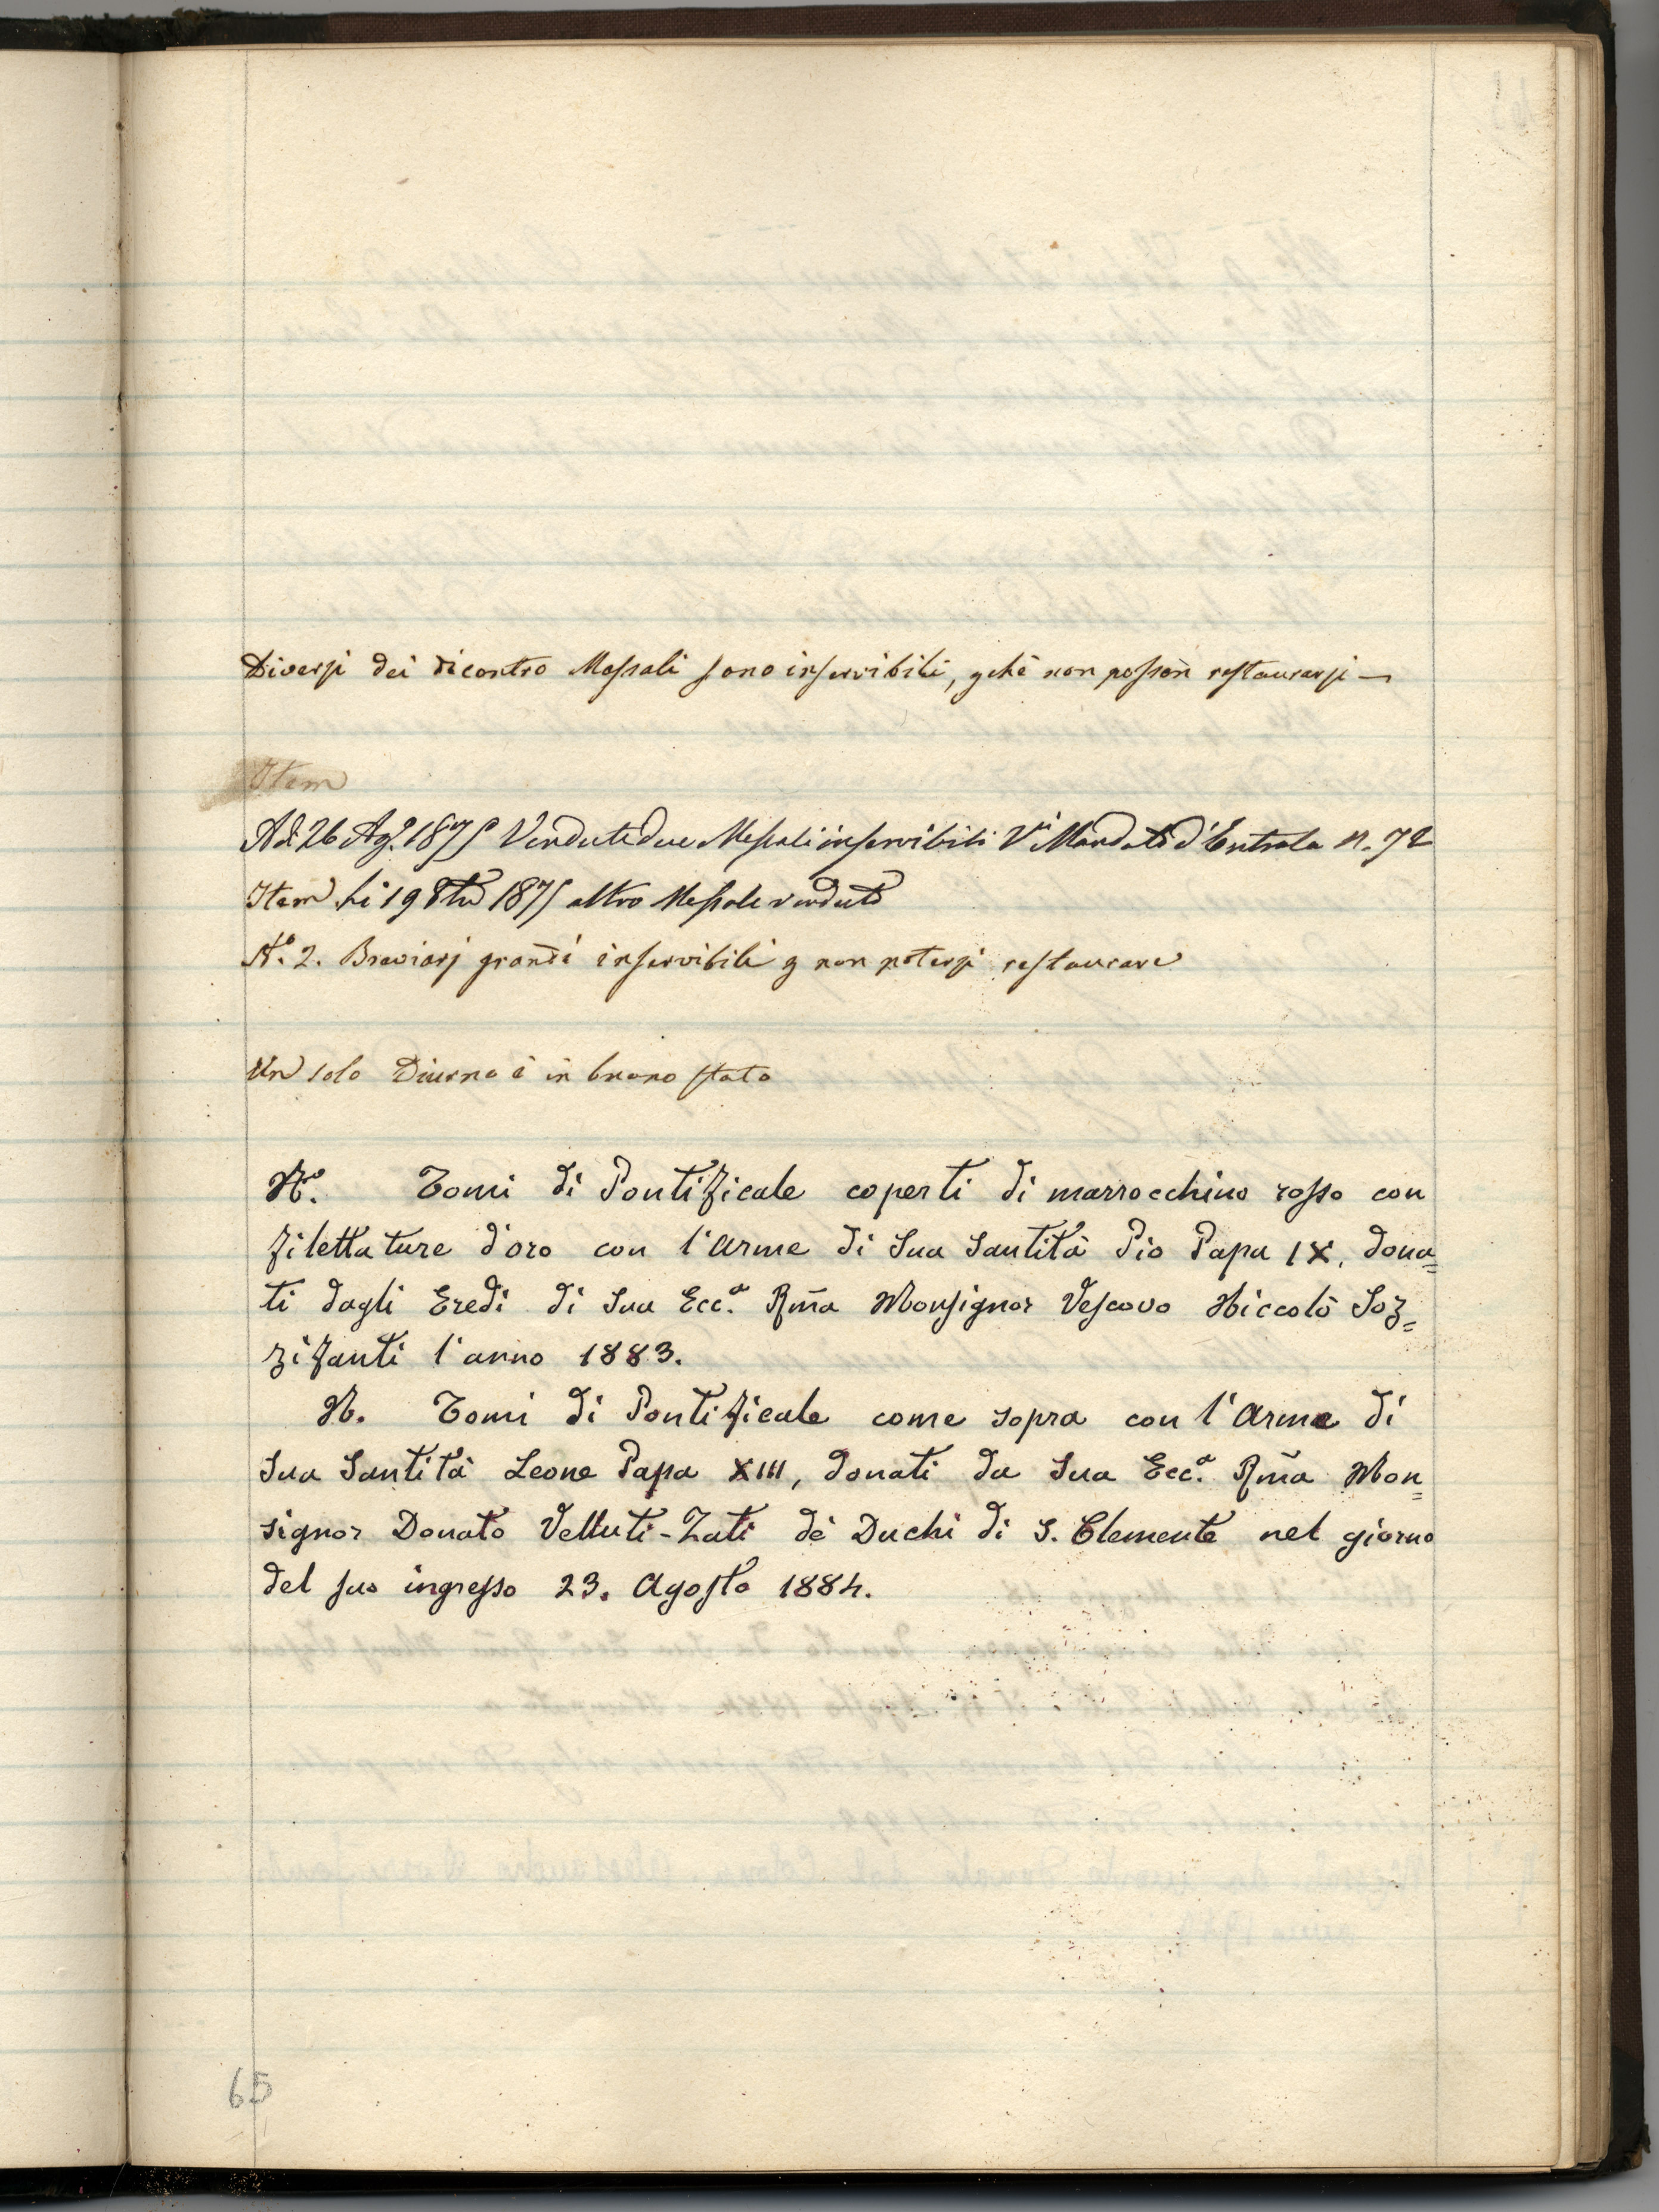 Diversi dei dicontro Messali sono inservibili, pché non posson restaurarsi —
Item
Adì 26 Ag.° 1875 Venduti due Messali inservibili V.i Mandato d'Entrata n. 72
Item li 19 8bre 1875 altro Messale venduto
N.° 2. Breviarj grandi inservibili p non potersi restaurare
Un solo Diurno è in buono stato
N.° Tomi di Pontificale coperti di marrocchino rosso con
filettature d'oro con l'Arme di Sua Santità Pio Papa IX, dona=
ti dagli Eredi di Sua Ecc.a Rm̃a Monsignor Vescovo Niccolò Soz=
zifanti l'anno 1883.
N. Tomi di Pontificale come sopra con l'Arme di
Sua Santità Leone Papa XIII, donati da Sua Ecc.a Rm̃a Mon=
signor Donato Velluti-Zati dè Duchi di S. Clemente nel giorno
del suo ingresso 23. Agosto 1884.
65